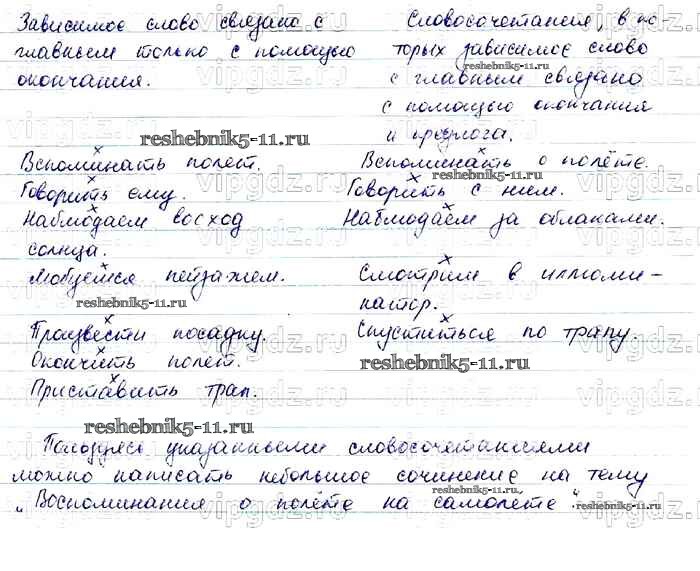 Зависимое слово связано с
главным только с помощью
окончания.
Словосочетания, в ко-
торых зависимое слово
с главным связано
с помощью окончания
и предлога.
reshebnik5-11.ru
Вспоминать полет. Вспоминать о полёте.
reshebnik5-11.ru
Говорить ему. Говорить с ним.
Наблюдаем восход Наблюдаем за облаками.
солнца.
Любуемся пейзажем. Смотрим в иллюми-
reshebnik5-11.ru
натор.
Произвести посадку. Спуститься по трапу.
Окончить полет.
reshebnik5-11.ru
Приставить трап.
reshebnik5-11.ru
Пользуясь указанными словосочетаниями
можно написать небольшое сочинение на тему
reshebnik5-11.ru
„Воспоминания о полёте на самолете".
vipgdz.ru